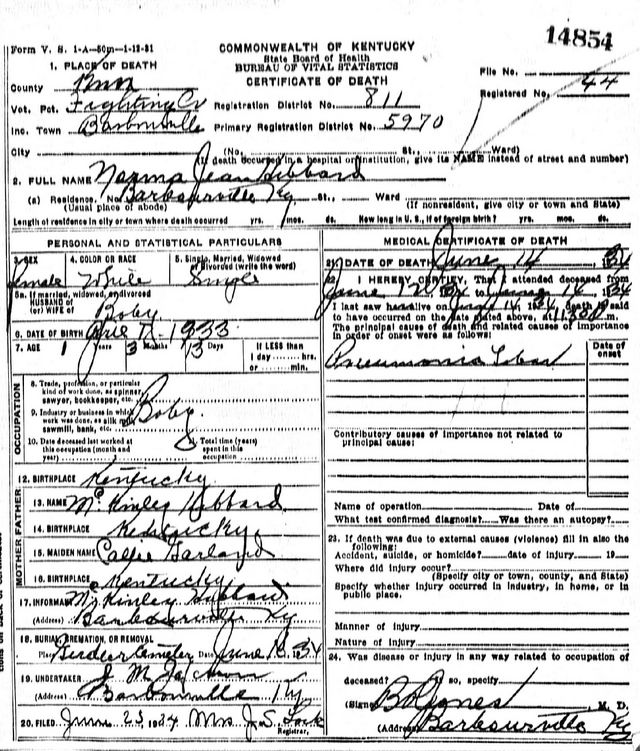 14854
Form V. S. 1-A—50m—1-12-31
COMMONWEALTH OF KENTUCKY
State Board of Health
BUREAU OF VITAL STATISTICS
CERTIFICATE OF DEATH
1. PLACE OF DEATH
File No.
County Knox
Registered No. 44
Vot. Pct. Fighting Cr Registration District No. 811
Inc. Town Barbourville Primary Registration District No. 5970
City (No. St., Ward)
(If death occurred in a hospital or institution, give its NAME instead of street and number)
2. FULL NAME Norma Jean Hibbard
(a) Residence. No. Barbourville Ky St., Ward
(Usual place of abode) (If nonresident, give city or town and State)
Length of residence in city or town where death occurred yrs. mos. ds. How long in U. S., if of foreign birth? yrs. mos. ds.
PERSONAL AND STATISTICAL PARTICULARS
3. SEX 4. COLOR OR RACE 5. Single, Married, Widowed or Divorced (write the word)
female White Single
5a. If married, widowed, or divorced
HUSBAND of
(or) WIFE of Boby
6. DATE OF BIRTH 1933
7. AGE 1 Years 3 Months 13 Days If LESS than
1 day hrs.
or min.
OCCUPATION
8. Trade, profession, or particular
kind of work done, as spinner,
sawyer, bookkeeper, etc.
Boby.
9. Industry or business in which
work was done, as silk mill,
sawmill, bank, etc.
10. Date deceased last worked at
this occupation (month and
year)
11. Total time (years)
spent in this
occupation
12. BIRTHPLACE Kentucky
FATHER
13. NAME McKinley Hibbard
14. BIRTHPLACE Kentucky
MOTHER
15. MAIDEN NAME Callie Garland
16. BIRTHPLACE Kentucky
17. INFORMANT McKinley Hibbard
(Address) Barbourville Ky
18. BURIAL, CREMATION, OR REMOVAL
Place Cemetery Date June 34
19. UNDERTAKER J M
(Address) Barbourville Ky.
20. FILED June 25, 1934 Mrs J. S. Lock
Registrar.
MEDICAL CERTIFICATE OF DEATH
21. DATE OF DEATH June 14, 34
22. I HEREBY CERTIFY, That I attended deceased from
June 34 to 34
I last saw h alive on 14, 34, death is said
to have occurred on the date stated above, at m.
The principal cause of death and related causes of importance
in order of onset were as follows:
Date of
onset
Pneumonia Lobar
Contributory causes of importance not related to
principal cause:
Name of operation Date of
What test confirmed diagnosis? Was there an autopsy?
23. If death was due to external causes (violence) fill in also the
following:
Accident, suicide, or homicide? date of injury 19
Where did injury occur?
(Specify city or town, county, and State)
Specify whether injury occurred in industry, in home, or in
public place.
Manner of injury
Nature of injury
24. Was disease or injury in any way related to occupation of
deceased? If so, specify
(Signed) B Jones M. D.
(Address) Barbourville Ky